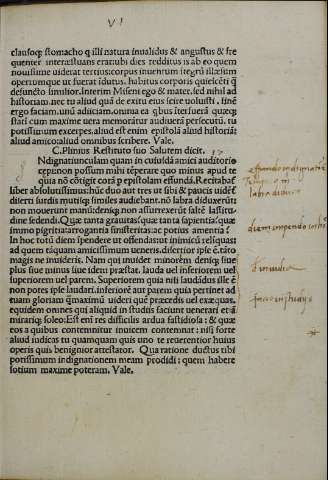 VI
clausoq; stomacho q illi natura inualidus & angustus & fre
quenter interæstuans erat. ubi dies redditus is ab eo quem
nouissime uiderat tertius: corpus inuentum integrũ illæsum
opertumque ut fuerat ĩdutus. habitus corporis quiescẽti q̃
defuncto similior. Interim Miseni ego & mater. sed nihil ad
historiam. nec tu aliud quã de exitu eius scire uoluisti. finẽ
ergo faciam. unũ adiiciam. omnia
stati cum maxime uera memorãtur audiuerã persecutũ. tu
potissimum excerpes. aliud est enim epistolã aliud historiã:
aliud amico: aliud omnibus scribere. Vale.
C. Plinius Restituto suo Salutem dicit. 17
Ndignatiunculam quam in cuiusdã amici auditorio
cepi non possum mihi tẽperare quo minus apud te
quia nõ cõtigit corã p epistolam effundã. Recitabat̃
liber absolutissimus: hũc duo aut tres ut sibi & paucis uidẽt̃
diserti surdis mutisq; similes audiebant. nõ labra diduxerũt:
non mouerunt manũ: deniq; non assurrexerũt saltẽ lassitu-
dine sedendi. Quæ tanta grauitas: quæ tanta sapientia: quæ
immo pigritia: arrogantia sinisteritas: ac potius amentia?
In hoc totũ diem ĩpendere ut offendas: ut inimicũ reliquas:
ad quem tãquam amicissimum ueneris. disertior ipse ẽ. tãto
magis ne inuideris. Nam qui inuidet minorẽm deniq; siue
plus siue minus siue idem præstat. lauda uel inferiorem uel
superiorem uel parem. Superiorem quia niti laudãdus ille ẽ
non potes ipse laudari. inferiorẽ aut parem quia pertinet ad
tuam gloriam q̃maximũ uideri quẽ præcedis uel exæquas.
equidem omnes qui aliquid in studiis faciunt uenerari etiã
mirariq; soleo. Est enĩ res difficilis ardua fastidiosa: & quæ
eos a quibus contemnitur inuicem contemnat: nisi forte
aliud iudicas tu quamquam quis uno te reuerentior huius
operis quis benignior æstimator. Qua ratione ductus tibi
potissimum indignationem meam prodidi: quem habere
sotium maxime poteram. Vale.
labra diducere
diem impendere
Inuidia